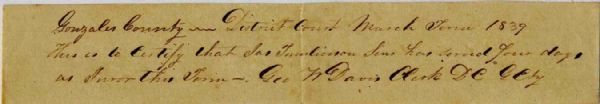 Gonzales County District Court March Term 1839
This is to Certify that Jas Tumlinson Senr has served four days
as Juror this Term —. Geo W Davis Clerk D C GCty